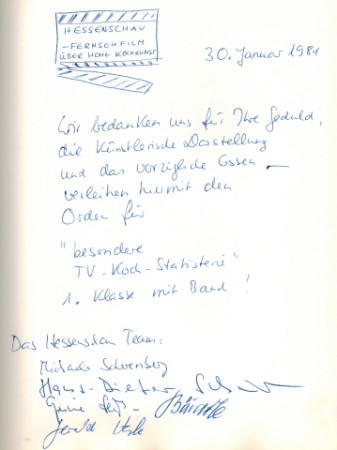 HESSENSCHAU
-FERNSEHFILM
ÜBER HOHE KOCHKUNST
30. Januar 1981
Wir bedanken uns für Ihre Geduld,
die künstlerische Darstellung
und das vorzügliche Essen –
verleihen hiermit den
Orden für
"besondere
TV-Koch-Statisterie"
1. Klasse mit Band!
Das Hessenschau Team:
Michaela Schoenberg
Hans-Dieter